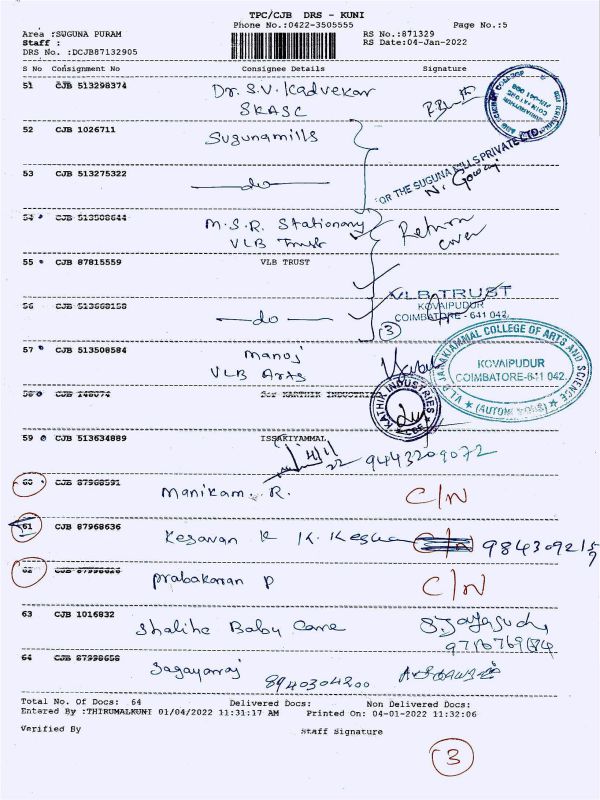 TPC/CJB DRS - KUNI
Phone No.:0422-3505555 Page No.:5
Area :SUGUNA PURAM RS No.:871329
Staff : RS Date:04-Jan-2022
DRS No. :DCJB87132905
S No Consignment No Consignee Details Signature
51 CJB 513298374 Dr. S.V. Kadvekar
SKASC
52 CJB 1026711 Sugunamills
53 CJB 513275322 do
FOR THE SUGUNA MILLS PRIVATE LTD
54 CJB 513508644 M.S.R. Stationary Return
VLB Trust cover
55 CJB 87815559 VLB TRUST
VLB TRUST
KOVAIPUDUR
COIMBATORE - 641 042.
56 CJB 513668158 do
3
57 CJB 513508584 manoj
VLB Arts
V.L.B. JANAKIAMMAL COLLEGE OF ARTS AND SCIENCE
KOVAIPUDUR
COIMBATORE-641 042.
(AUTONOMOUS)
58 CJB 148074 Ser KARTHIK INDUSTRIES
INDUSTRIES
CBE
59 CJB 513634889 ISSAKIYAMMAL
4/1/22 9443209072
60 CJB 87968591 Manikam. R. C/N
61 CJB 87968636 Kesavan K K. Kesava C/N
62 Prabakaran P C/N
63 CJB 1016832 Shalihe Baby Care S. Jayasudha
64 CJB 87998658 Sagayaraj 8940304200
Total No. Of Docs: 64 Delivered Docs: Non Delivered Docs:
Entered By :THIRUMALKUNI 01/04/2022 11:31:17 AM Printed On: 04-01-2022 11:32:06
Verified By Staff Signature
3